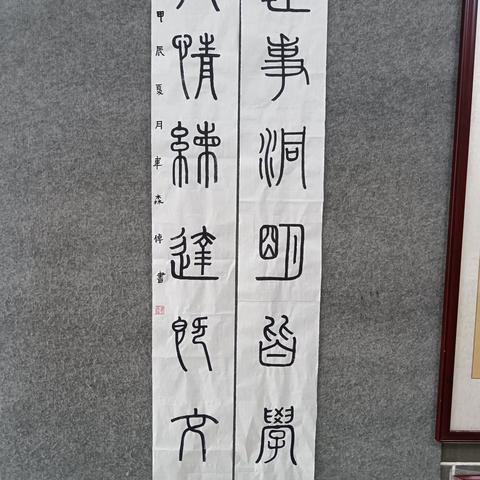 世事洞明皆學
人情練達即文
甲辰夏月車森倬書